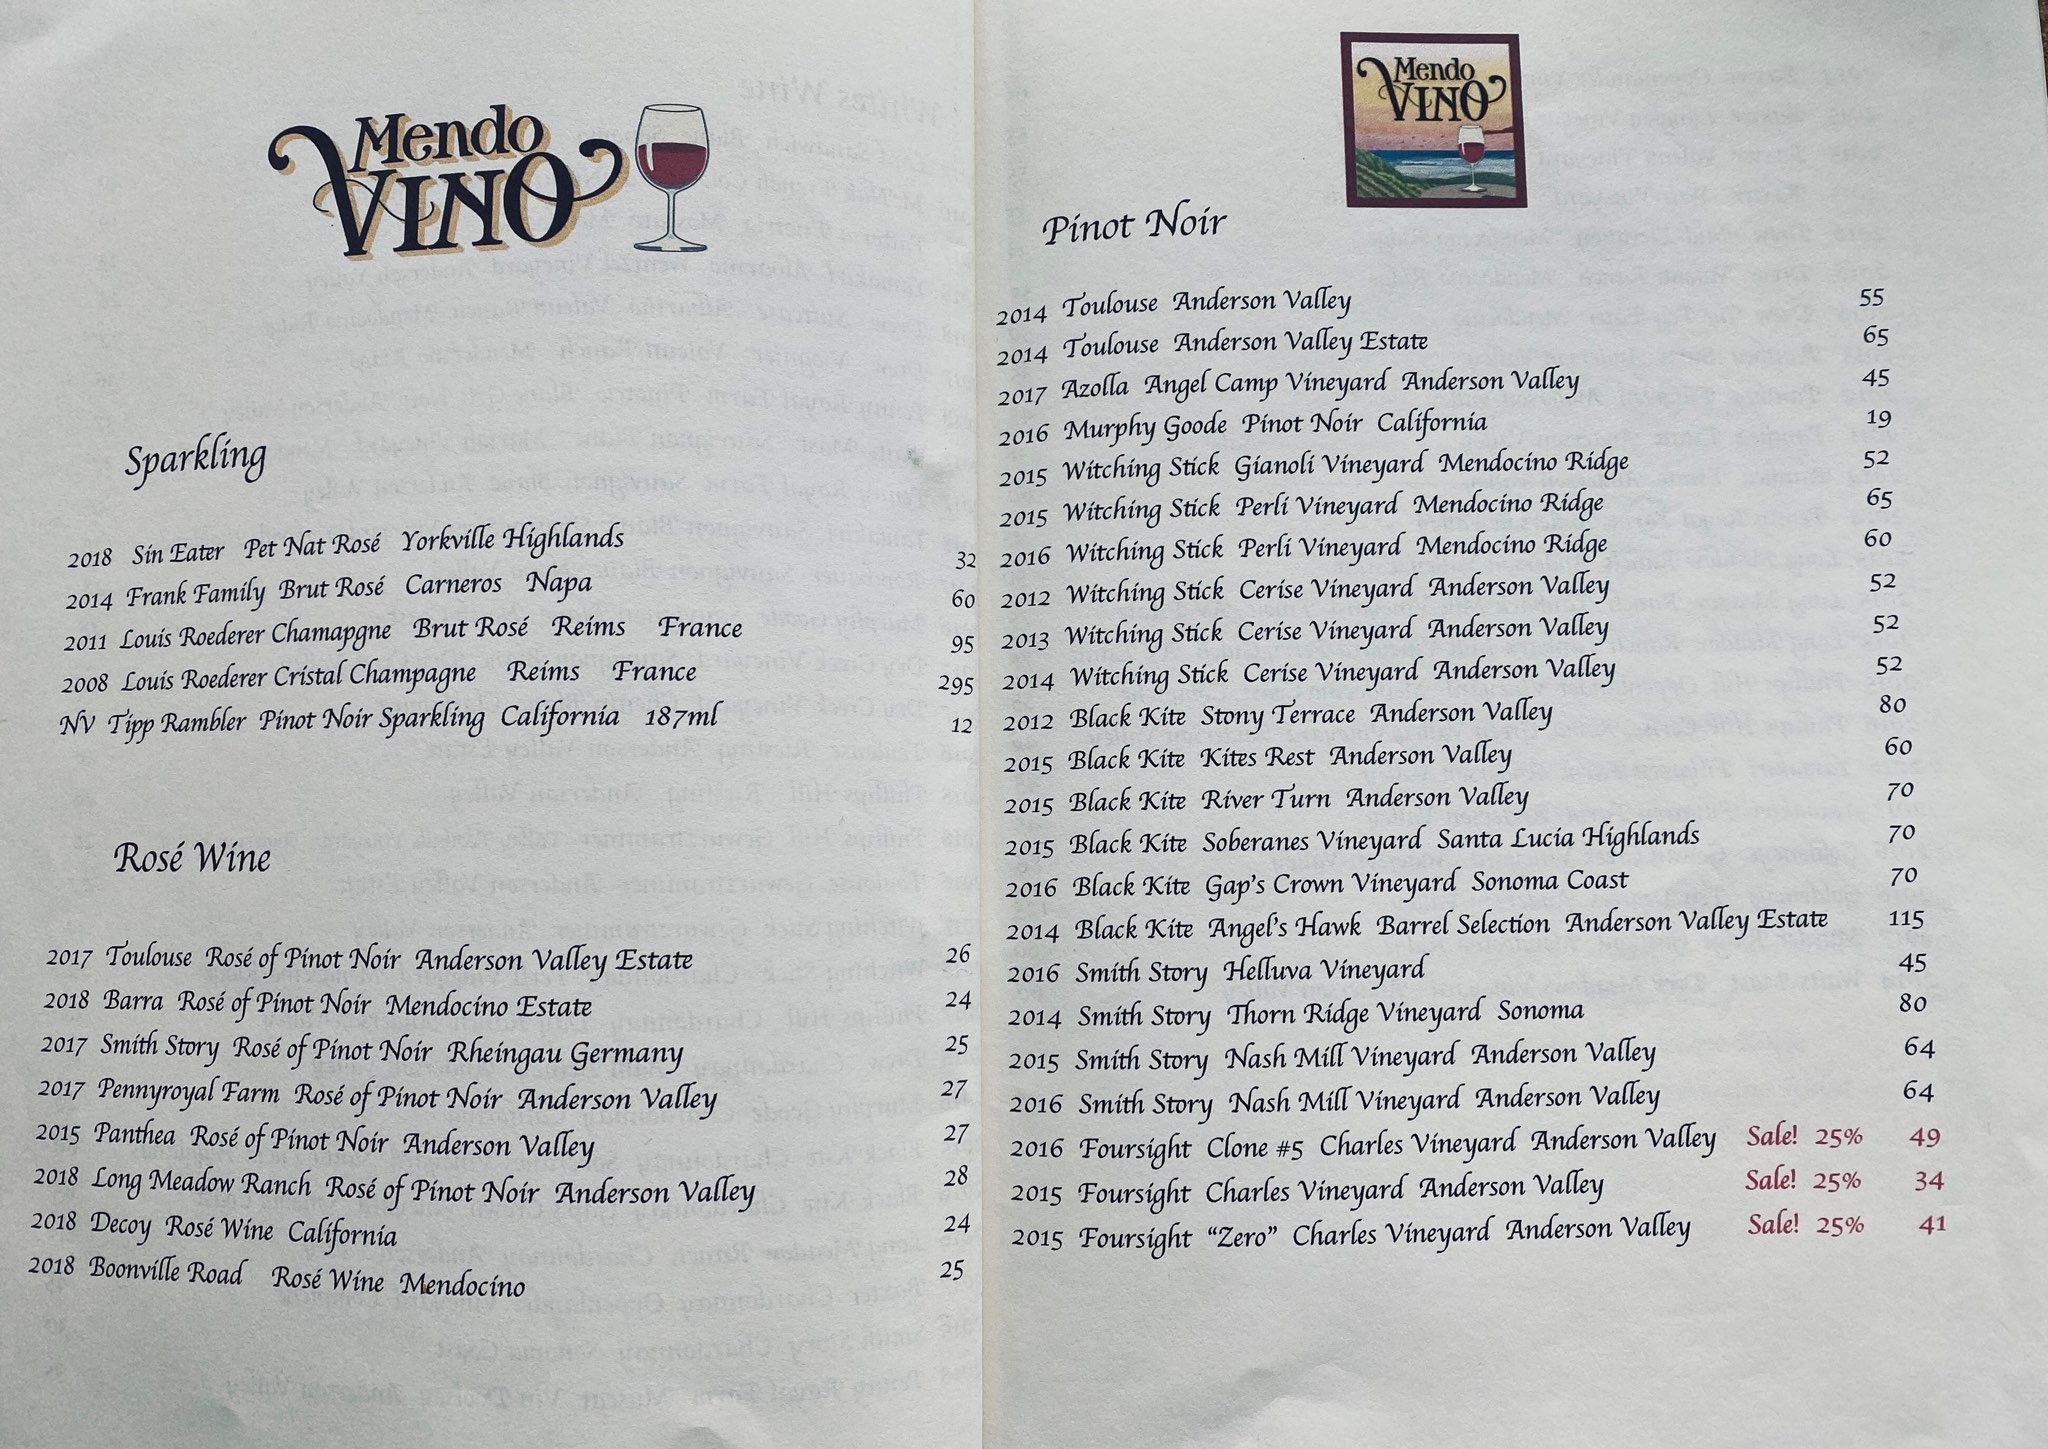 Mendo
VINO
Sparkling
2018 Sin Eater Pet Nat Rosé Yorkville Highlands 32
2014 Frank Family Brut Rosé Carneros Napa 60
2011 Louis Roederer Chamapgne Brut Rosé Reims France 95
2008 Louis Roederer Cristal Champagne Reims France 295
NV Tipp Rambler Pinot Noir Sparkling California 187ml 12
Rosé Wine
2017 Toulouse Rosé of Pinot Noir Anderson Valley Estate 26
2018 Barra Rosé of Pinot Noir Mendocino Estate 24
2017 Smith Story Rosé of Pinot Noir Rheingau Germany 25
2017 Pennyroyal Farm Rosé of Pinot Noir Anderson Valley 27
2015 Panthea Rosé of Pinot Noir Anderson Valley 27
2018 Long Meadow Ranch Rosé of Pinot Noir Anderson Valley 28
2018 Decoy Rosé Wine California 24
2018 Boonville Road Rosé Wine Mendocino 25
Mendo
VINO
Pinot Noir
2014 Toulouse Anderson Valley 55
2014 Toulouse Anderson Valley Estate 65
2017 Azolla Angel Camp Vineyard Anderson Valley 45
2016 Murphy Goode Pinot Noir California 19
2015 Witching Stick Gianoli Vineyard Mendocino Ridge 52
2015 Witching Stick Perli Vineyard Mendocino Ridge 65
2016 Witching Stick Perli Vineyard Mendocino Ridge 60
2012 Witching Stick Cerise Vineyard Anderson Valley 52
2013 Witching Stick Cerise Vineyard Anderson Valley 52
2014 Witching Stick Cerise Vineyard Anderson Valley 52
2012 Black Kite Stony Terrace Anderson Valley 80
2015 Black Kite Kites Rest Anderson Valley 60
2015 Black Kite River Turn Anderson Valley 70
2015 Black Kite Soberanes Vineyard Santa Lucia Highlands 70
2016 Black Kite Gap's Crown Vineyard Sonoma Coast 70
2014 Black Kite Angel's Hawk Barrel Selection Anderson Valley Estate 115
2016 Smith Story Helluva Vineyard 45
2014 Smith Story Thorn Ridge Vineyard Sonoma 80
2015 Smith Story Nash Mill Vineyard Anderson Valley 64
2016 Smith Story Nash Mill Vineyard Anderson Valley 64
2016 Foursight Clone #5 Charles Vineyard Anderson Valley Sale! 25% 49
2015 Foursight Charles Vineyard Anderson Valley Sale! 25% 34
2015 Foursight “Zero” Charles Vineyard Anderson Valley Sale! 25% 41